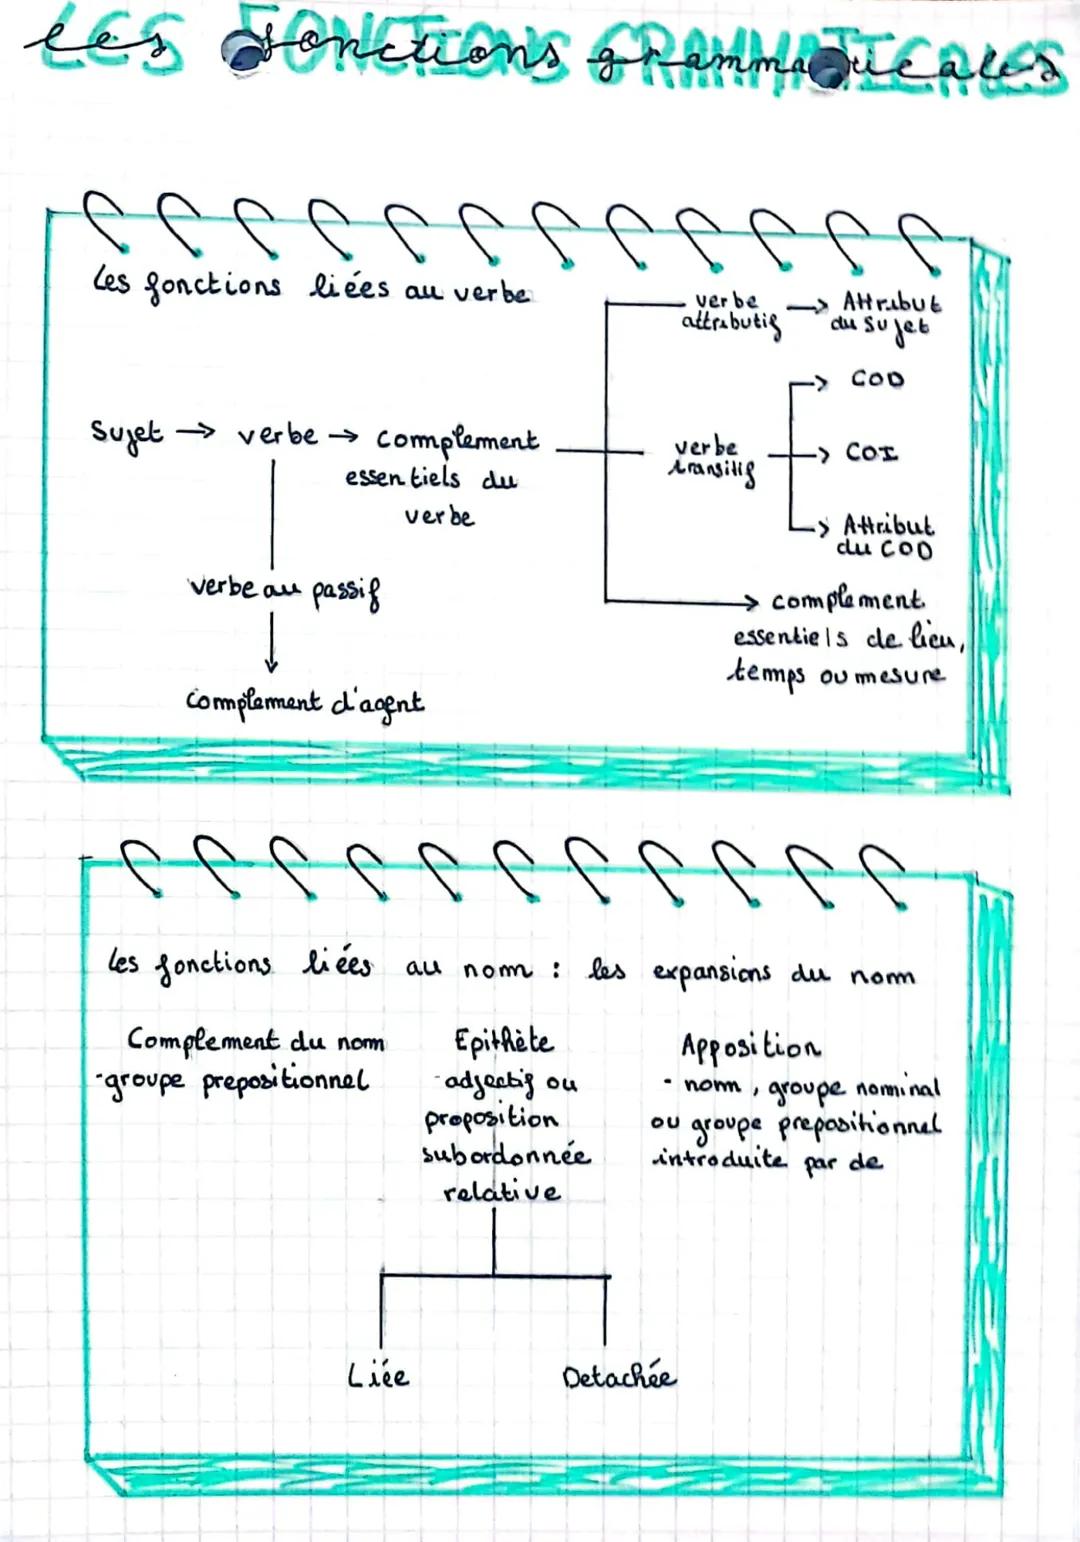 les fonctions grammaticales
LES FONCTIONS GRAMMATICALES
Les fonctions liées au verbe
verbe attributif → Attribut du sujet
Sujet → verbe → complement essentiels du verbe
verbe transitif
→ COD
→ COI
→ Attribut du COD
→ complement essentiels de lieu, temps ou mesure
verbe au passif
complement d'agent
les fonctions liées au nom : les expansions du nom
Complement du nom
-groupe prepositionnel
Epithète
-adjectif ou
proposition
subordonnée
relative
Liée
Detachée
Apposition
- nom, groupe nominal
ou groupe prepositionnel
introduite par de